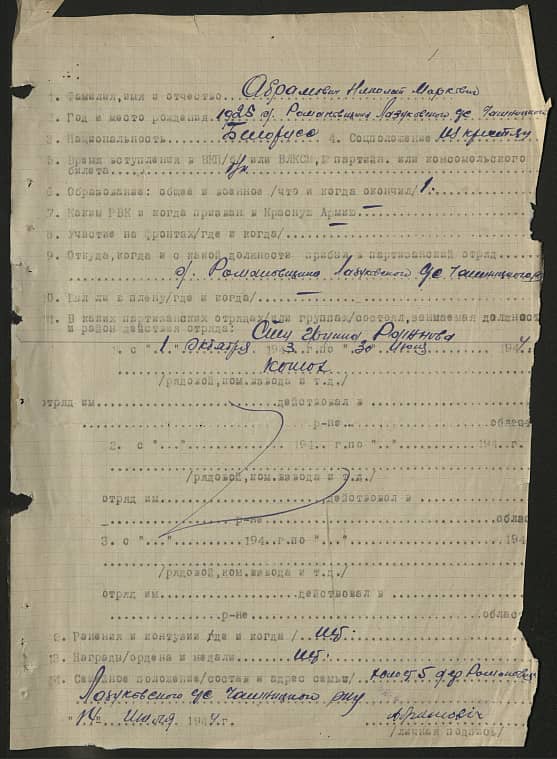 1. Фамилия, имя и отчество Абрамович Николай Маркович
2. Год и место рождения 1925 д. Романовщина Лазуковского с/с Чашницкого
3. Национальность Белорусс 4. Соцположение из крестьян
5. Время вступления в ВКП/б/ или ВЛКСМ, № партийн. или комсомольского
билета б/п
6. Образование: общее и военное /что и когда окончил/
7. Каким РВК и когда призван в Красную Армию —
8. Участие на фронтах/где и когда/ —
9. Откуда, когда и с какой должности прибыл в партизанский отряд
д. Романовщина Лазуковского с/с Чашницкого
10. Был ли в плену/где и когда/ —
11. В каких партизанских отрядах/или группах/состоял, занимаемая должность
и район действия отряда: Спец группа
1. с "1" октября 1943 г. по "30" июня 1944
/рядовой, ком. взвода и т.д./
отряд им. действовал в
р-не област
2. с "..." 194.. г. по ".." 194.. г.
/рядовой, ком. взвода и т.д./
отряд им. действовал в
р-не облас
3. с "..." 194.. г. по "..." 194
/рядовой, ком. взвода и т.д./
отряд им. действовал в
р-не област
12. Ранения и контузии /где и когда/ нет.
13. Награды/ордена и медали нет.
14. Семейное положение/состав и адрес семьи/ холост 5 д.
Лазуковского с/с Чашницкого р-на
июля 1944 г. Абрамовіч
/личная подпись/